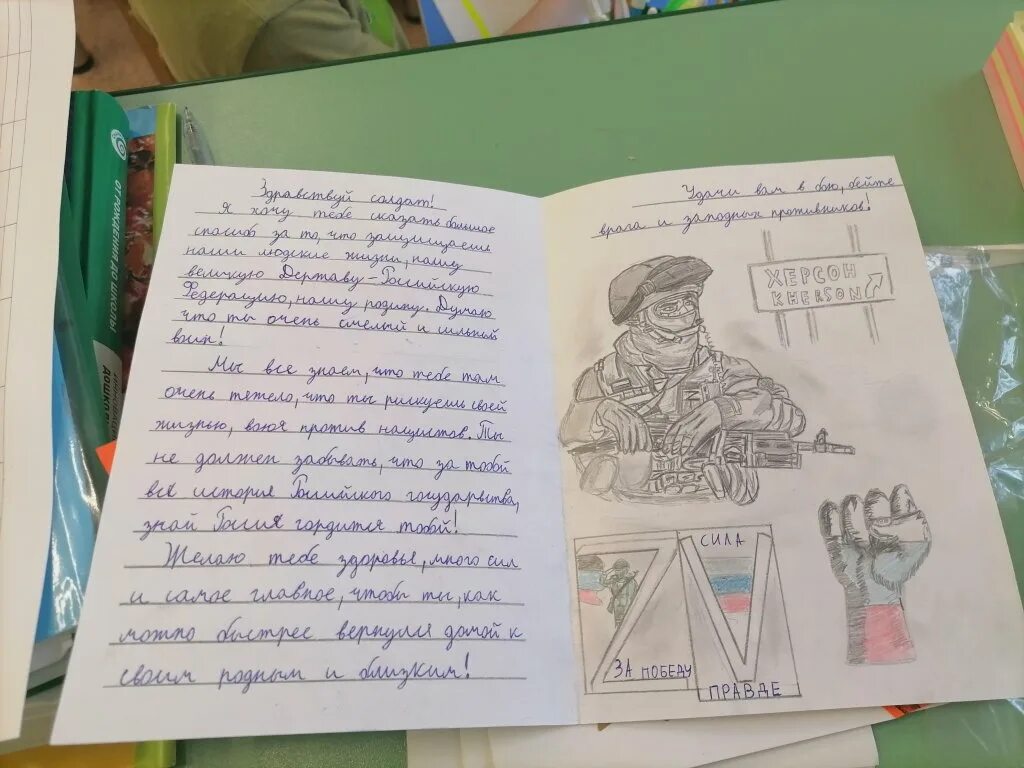 ОТ РОЖДЕНИЯ ДО ШКОЛЫ
Здравствуй солдат!
Я хочу тебе сказать большое
спасиб за то, что защищаешь
наши людские жизни, нашу
великую Державу - Российскую
Федерацию, нашу родину. Думаю
что ты очень смелый и сильный
воин!
Мы все знаем, что тебе там
очень тяжело, что ты рискуешь своей
жизнью, воюя против нацистов. Ты
не должен забывать, что за тобой
вся история Российского государства,
знай Россия гордится тобой!
Желаю тебе здоровья, много сил
и самое главное, чтобы ты, как
можно быстрее вернулся домой к
своим родным и близким!
Удачи вам в бою, бейте
врага и западных противников!
ХЕРСОН
KHERSON
Z V
СИЛА
ЗА ПОБЕДУ
ПРАВДЕ